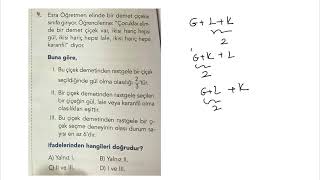 9. Esra Öğretmen elinde bir demet çiçekle
sınıfa giriyor. Öğrencilerine: "Çocuklar elim-
de bir demet çiçek var, ikisi hariç hepsi
gül, ikisi hariç hepsi lale, ikisi hariç hepsi
karanfil" diyor.
Buna göre,
I. Bu çiçek demetinden rastgele bir çiçek
seçildiğinde gül olma olasılığı 2/3 tür.
II. Bu çiçek demetinden rastgele seçilen
bir çiçeğin gül, lale veya karanfil olma
olasılıkları eşittir.
III. Bu çiçek demetinden rastgele bir çi-
çek seçme deneyinin olası durum sayı-
sı en az 6'dır.
ifadelerinden hangileri doğrudur?
A) Yalnız I. B) Yalnız II.
C) II ve III. D) I ve III.
G+L+K
2
G+K+L
2
G+L+K
2